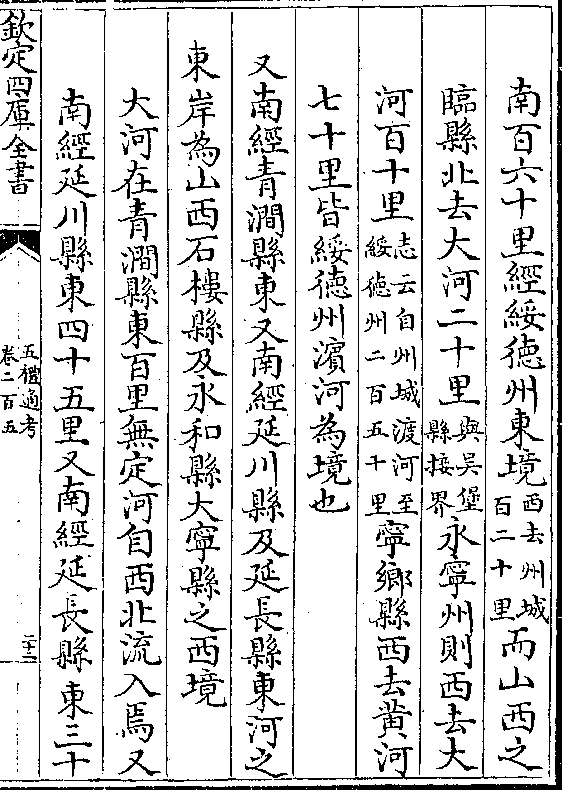 南百六十里經綏德州東境西去州城百二十里而山西之
臨縣北去大河二十里與吳堡縣接界永寧州則西去大
河百十里志云自州城渡河至綏德州二百五十里寧鄉縣西去黄河
七十里皆綏德州濵河為境也
又南經青澗縣東又南經延川縣及延長縣東河之
東岸為山西石樓縣及永和縣大寧縣之西境
大河在青澗縣東百里無定河自西北流入焉又
南經延川縣東四十五里又南經延長縣東三十
欽定四庫全書
五禮通考
卷二百五
二十二